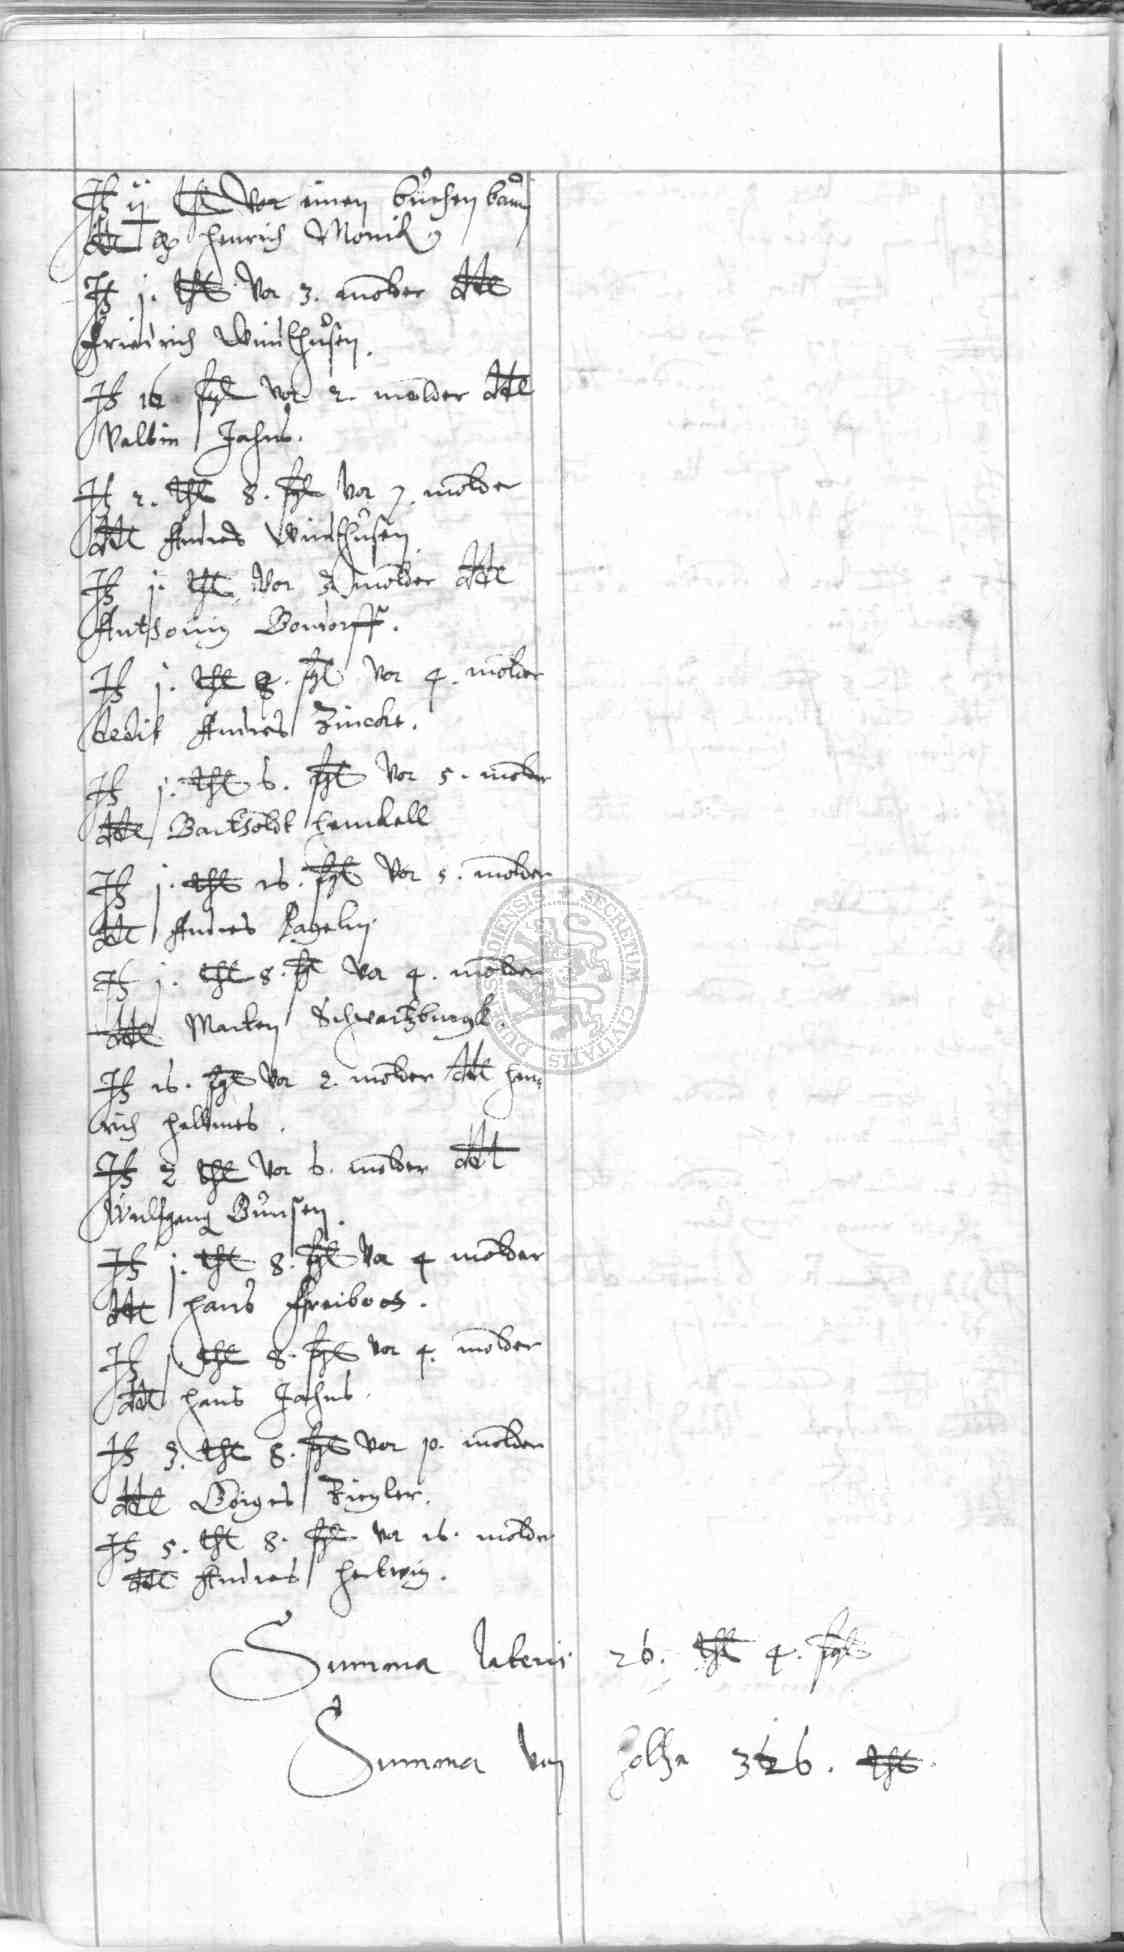 It ij thl Vor einen buchen baum
ddt Henrich Monick
It j. thl Vor 3. molder ddt
Friedrich Winthusen.
It 16 sgl Vor 2. molder ddt
Valtin Jahns.
It 2. thl 8. sgl Vor 7. molder
ddt Andres Winthusen
It j. thl Vor 3 molder ddt
Anthoniy Bondorff.
It j. thl 8. sgl Vor 4. molder
dedit Andres Zincke.
It j. thl 6. sgl Vor 5. molder
ddt Bartholdt Henckell
It j. thl 16. sgl Vor 5. molder
ddt Andres
It j. thl 8. sgl Vor 4. molder
ddt Marten Schwartzburgk.
It 16. sgl Vor 2. molder ddt Hen=
rich Hellmes.
It 2 thl Vor 6. molder ddt
Wulfgang Bunsen.
It j. thl 8. sgl Vor 4 molder
ddt Hans Freibott.
It j thl 8. sgl Vor 4. molder
ddt Hans Jahns.
It 3. thl 8. sgl Vor 10. molder
ddt Görges Ziegler.
It 5. thl 8. sgl Vor 16. molder
ddt Andres Hertwig.
Summa lateris 26. thl 4. sgl
Summa Von Holtze thl.
SECRETUM CIVITATIS DUDERSTADIENSIS